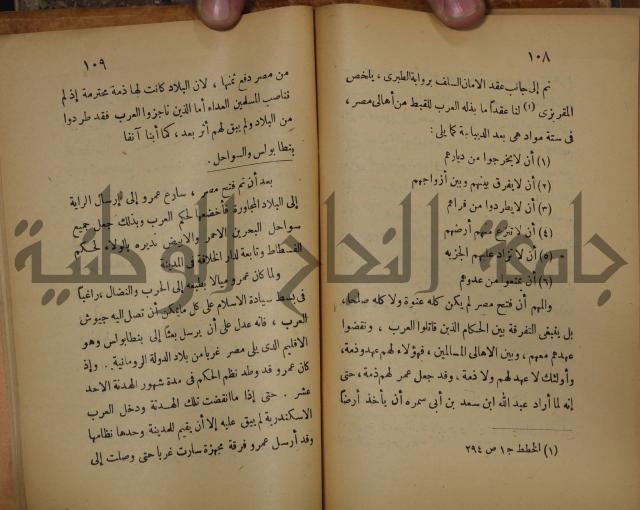 ١٠٨
ثم إلى جانب عقد الامان السلف برواية الطبرى، يلخص
المقريزى (١) لنا عقداً ما بذله العرب للقبط من أهالى مصر،
فى ستة مواد هى بعد الديباجة كما يلى:
(١) أن لا يخرجوا من ديارهم
(٢) أن لا يفرق بينهم وبين أزواجهم
(٣) أن لا يطردوا من قراهم
(٤) أن لا تنزع منهم أرضهم
(٥) أن لا تزاد عليهم الجزية
(٦) أن يمنعوا من عدوهم
والمهم أن فتح مصر لم يكن كله عنوة ولا كله صلحاً،
بل ينبغى التفرقة بين الحكام الذين قاتلوا العرب، ونقضوا
عهدهم معهم، وبين الاهالى المسالمين، فهؤلاء لهم عهد وذمة،
وأولئك لا عهد لهم ولا ذمة. وقد جعل عمر لهم ذمة، حتى
إنه لما أراد عبد الله ابن سعد بن أبى سمره أن يأخذ أرضاً
(١) الخطط ج١ ص ٢٩٤
١٠٩
من مصر دفع ثمنها، لان البلاد كانت لها ذمة محترمة إذ لم
تناصب المسلمين العداء أما الذين ناجزوا العرب فقد طردوا
من البلاد ولم يبق لهم أثر بعد، كما أبنا آنفا
بنطابولس والسواحل.
بعد أن تم فتح مصر، سارع عمرو إلى إرسال الراية
إلى البلاد المجاورة فأخضعها لحكم العرب وبذلك جعل جميع
سواحل البحرين الاحمر والابيض نديره بالولاء لحكم
الفسطاط وتابعة لدار الخلافة فى المدينة
ولما كان عمرو ميالا بطبعه إلى الحرب والنضال، راغباً
فى بسط سيادة الاسلام على كل ما يمكن أن تصل اليه جيوش
العرب، فانه عدل على أن يرسل بعثاً إلى بنطابولس وهو
الاقليم الذى يلى مصر غربا من بلاد الدولة الرومانية.. وإذ
كان عمرو قد وطد نظم الحكم فى مدة شهور الهدنة الاحد
عشر. حتى إذا ما انقضت تلك الهدنة ودخل العرب
الاسكندرية لم يبق عليه إلا أن يقيم للمدينة وحدها نظامها
وقد أرسل عمرو فرقة مجهزة سارت غربا حتى وصلت إلى
جامعة النجاح الوطنية